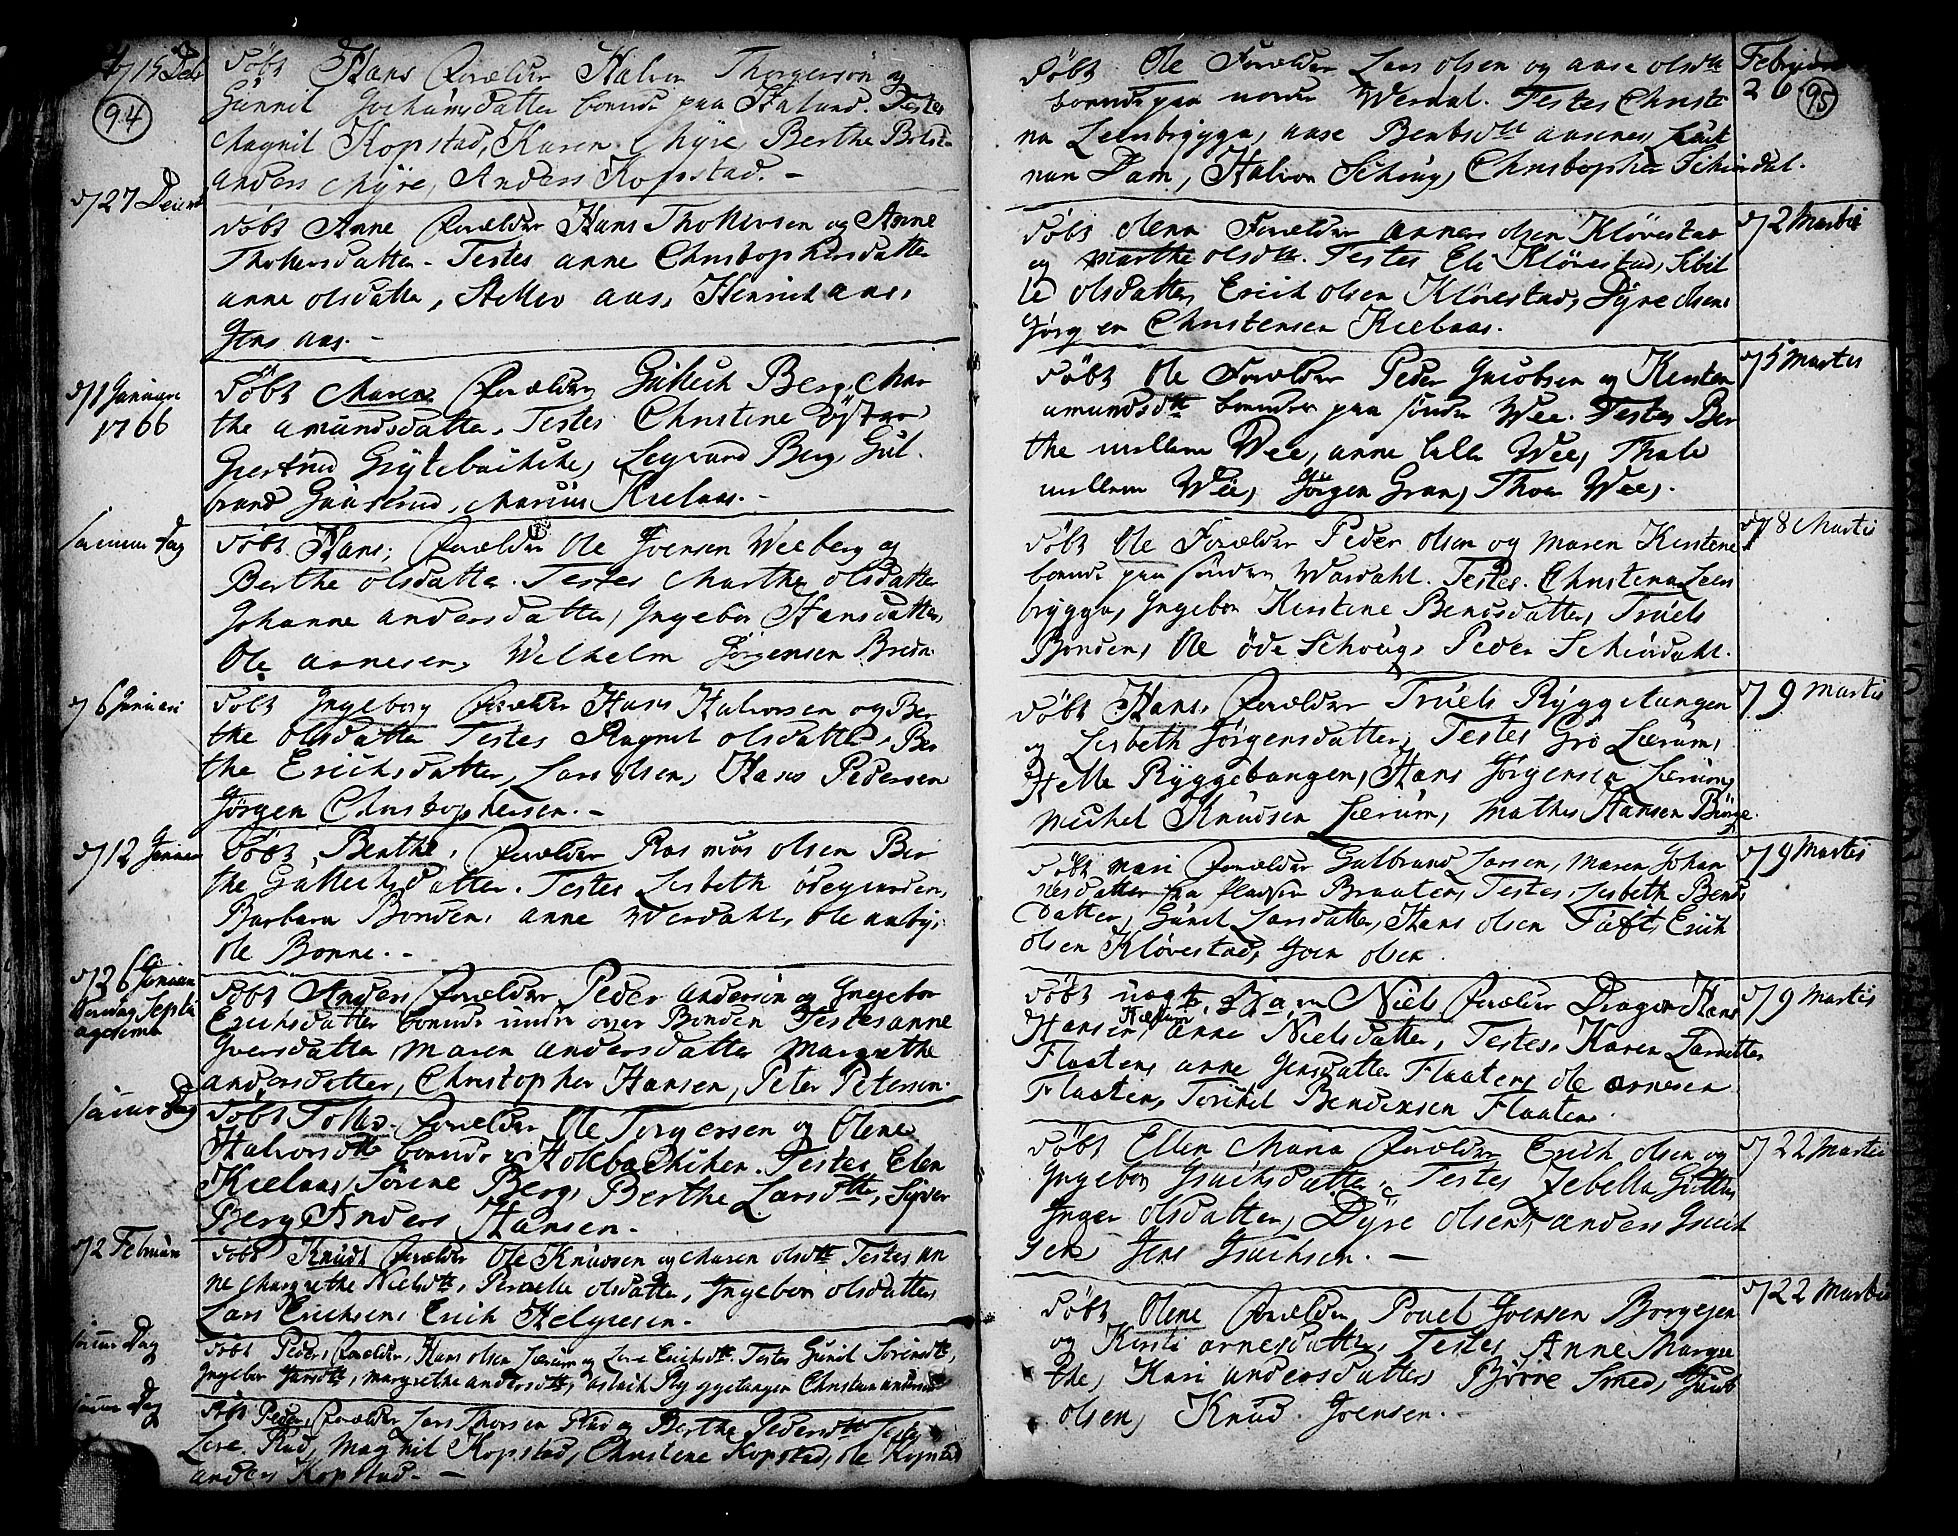 d/ 15 Dec
94
döbt Hans forældre Halvor Thorgerson og
Gunnil Jochumsdatter boende paa Stalund. Testes
Magnil Kopstad, Karen Myre, Berthe
anders Myre, Anders Kopstad. -
d/ 27 Decem
döbt Anne forældre Hans Tholleversen og Anne
Tholersdatter - Testes anne Christophersdatter
anne olsdatter, aas, Henrich aas,
Jens aas. -
d/ 1 Januari
1766
döbt Maren forældre Gullich Berg, Mar
the amundsdatter. Testes Christine
Giertrud Grytebachike, Segvard Berg, Gul
brand Gaustrud, Marius Kielaas. -
samme Dag
döbt Hans, forældre Ole Joensen Weeberg og
Berthe olsdatter. Testes Marthe olsdatter
Johanne andersdatter, Ingebor Hansdatter,
Ole arnesen, Wilhelm Jörgensen
d/ 6 Januari
döbt Ingeborg forældre Hans Halvorsen og Ber
the olsdatter Testes Ragnil olsdatter, Ber
the Erichsdatter, Lars olsen, Hans Pedersen
Jörgen Christophersen. -
d/ 12 Januar
döbt Berthe, forældre Rasmus olsen Ber
the Gullichsdatter. Testes Lisbeth ödegaarden,
Barbara Bonden, anne Werdahl, ole aaby,
ole Bonne. -
d/ 26 Januar
Septu
agesima
döbt Anders forældre Peder andersön og Ingebor
Erichsdatter boende under over Bonden Testes anne
Iversdatter, Maren andersdatter Margrethe
andersdatter, Christopher Hansen, Peter Petersen.
samme Dag
döbt forældre Ole Torgersen og Olene
Halvorsdtt boende i Testes Elen
Kielaas, Sörene Berg, Berthe Larsdtt,
Berg Anders Hansen. -
d/ 2 Februari
döbt Knud forældre Ole Knudsen og Maren olsdtt Testes an
ne Margrethe Nielsdtt, Pernelle olsdatter, Ingebor olsdatter
Lars Erichsen, Erich Helgesen. -
samme Dag
döbt Peder, forældre, Hans olsen Lærum og Live Erichsdtt. Testes Gunil Sörensdtt,
Ingebor Hansdtt, Margrethe andersdtt, aslach Ryggetangen Christen
samme Dag
döbt Peder, forældre Lars Thorsen Rud og Berthe Pedersdtt Testes
Live Rud, Magnil Kopstad, Christene Kopstad, ole Kopstad
anders Kopstad. -
döbt Ole Forældre Lars olsen og aase olsdtt
boende paa nordre Werdal. Testes Christi
na Leensbrygga, aase Bentsdtt aasnes, Leut
nan Dam, Halvor Schoug, Christopher Schiendal.
Februari
26
95
döbt olena Forældre olsen Klövestad
og Marthe olsdtt. Testes Ele Klövestad, Sibil
le olsdatter, Erich olsen Klövestad, Dyre olsen,
Jörgen Christensen Kielaas.
d/ 2 Martii
döbt Ole Forældre Peder Jacobsen og Kirsten
amundsdtt boende paa söndre Wee. Testes Ber
the mellem Wee, anne lille Wee, Thale
mellem Wee, Jörgen Gran, Thor Wee,
d/ 5 Martii
döbt Ole Forældre Peder olsen og Maren Kirstene
boende paa söndre Wardahl. Testes Christena Leen
brygga, Ingebor Kirstene Bendsdatter, Truels
Bonden, Ole öde Schoug, Peder Schiendahl.
d/ 8 Martii
döbt Hans, forældre Truels Ryggetangen
og Lisbeth Jörgensdatter, Testes Gro Lærum,
Helle Ryggetangen, Hans Jörgensen Lærum,
Michel Knudsen Lærum, Mathes Hansen
d/ 9 Martii
döbt mari forældre Gulbrand Larsen, Maren Johan
nesdatter fra pladsen Braaten, Testes Lisbeth Bends
datter, Gunil Larsdatter, Hans olsen Tuft, Erich
olsen Klövestad, Joen olsen.
d/ 9 Martii
döbt uægte Barn Niels forældre Dragon Hans
Hansen Hælum, anne Nielsdatter, Testes, Karen
Flaaten, anne Jensdatter Flaaten, ole arnesen
Flaaten, Torchel Bendixsen Flaaten.
d/ 9 Martii
döbt Ellen Maria forældre Erich olsen og
Ingebor Isachsdatter. Testes Zebella
Inger olsdatter, Dyre olsen, anders Isach
sen Jens Isachsen. -
d/ 22 Martii
döbt Olene forældre Povel Joensen Borgesen
og Kirsti arnesdatter, Testes Anne Margre
the, Kari andersdatter, Börre Smed,
olsen, Knud Joensen.
d/ 22 Martii